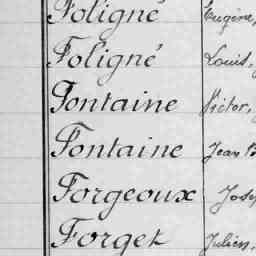 Foligné Eugène,
Foligné Louis,
Fontaine Victor,
Fontaine Jean B
Forgeoux Jose
Forget Julien,